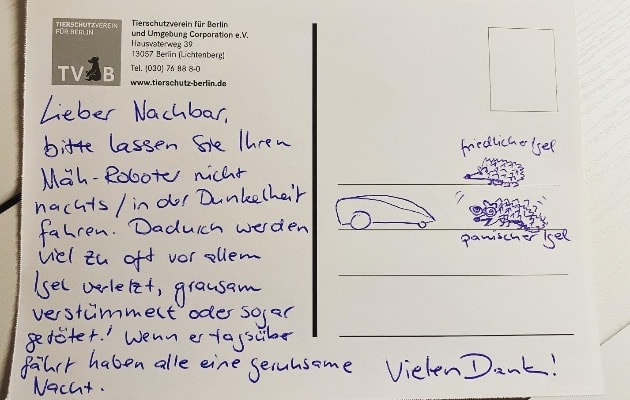 TIERSCHUTZVEREIN
FÜR BERLIN
TVB
Tierschutzverein für Berlin
und Umgebung Corporation e.V.
Hausvaterweg 39
13057 Berlin (Lichtenberg)
Tel. (030) 76 88 8-0
www.tierschutz-berlin.de
Lieber Nachbar,
bitte lassen Sie Ihren
Mäh-Roboter nicht
nachts/in der Dunkelheit
fahren. Dadurch werden
viel zu oft vor allem
Igel verletzt, grausam
verstümmelt oder sogar
getötet! Wenn er tagsüber
fährt haben alle eine geruhsame
Nacht.
friedlicher Igel
panischer Igel
Vielen Dank!